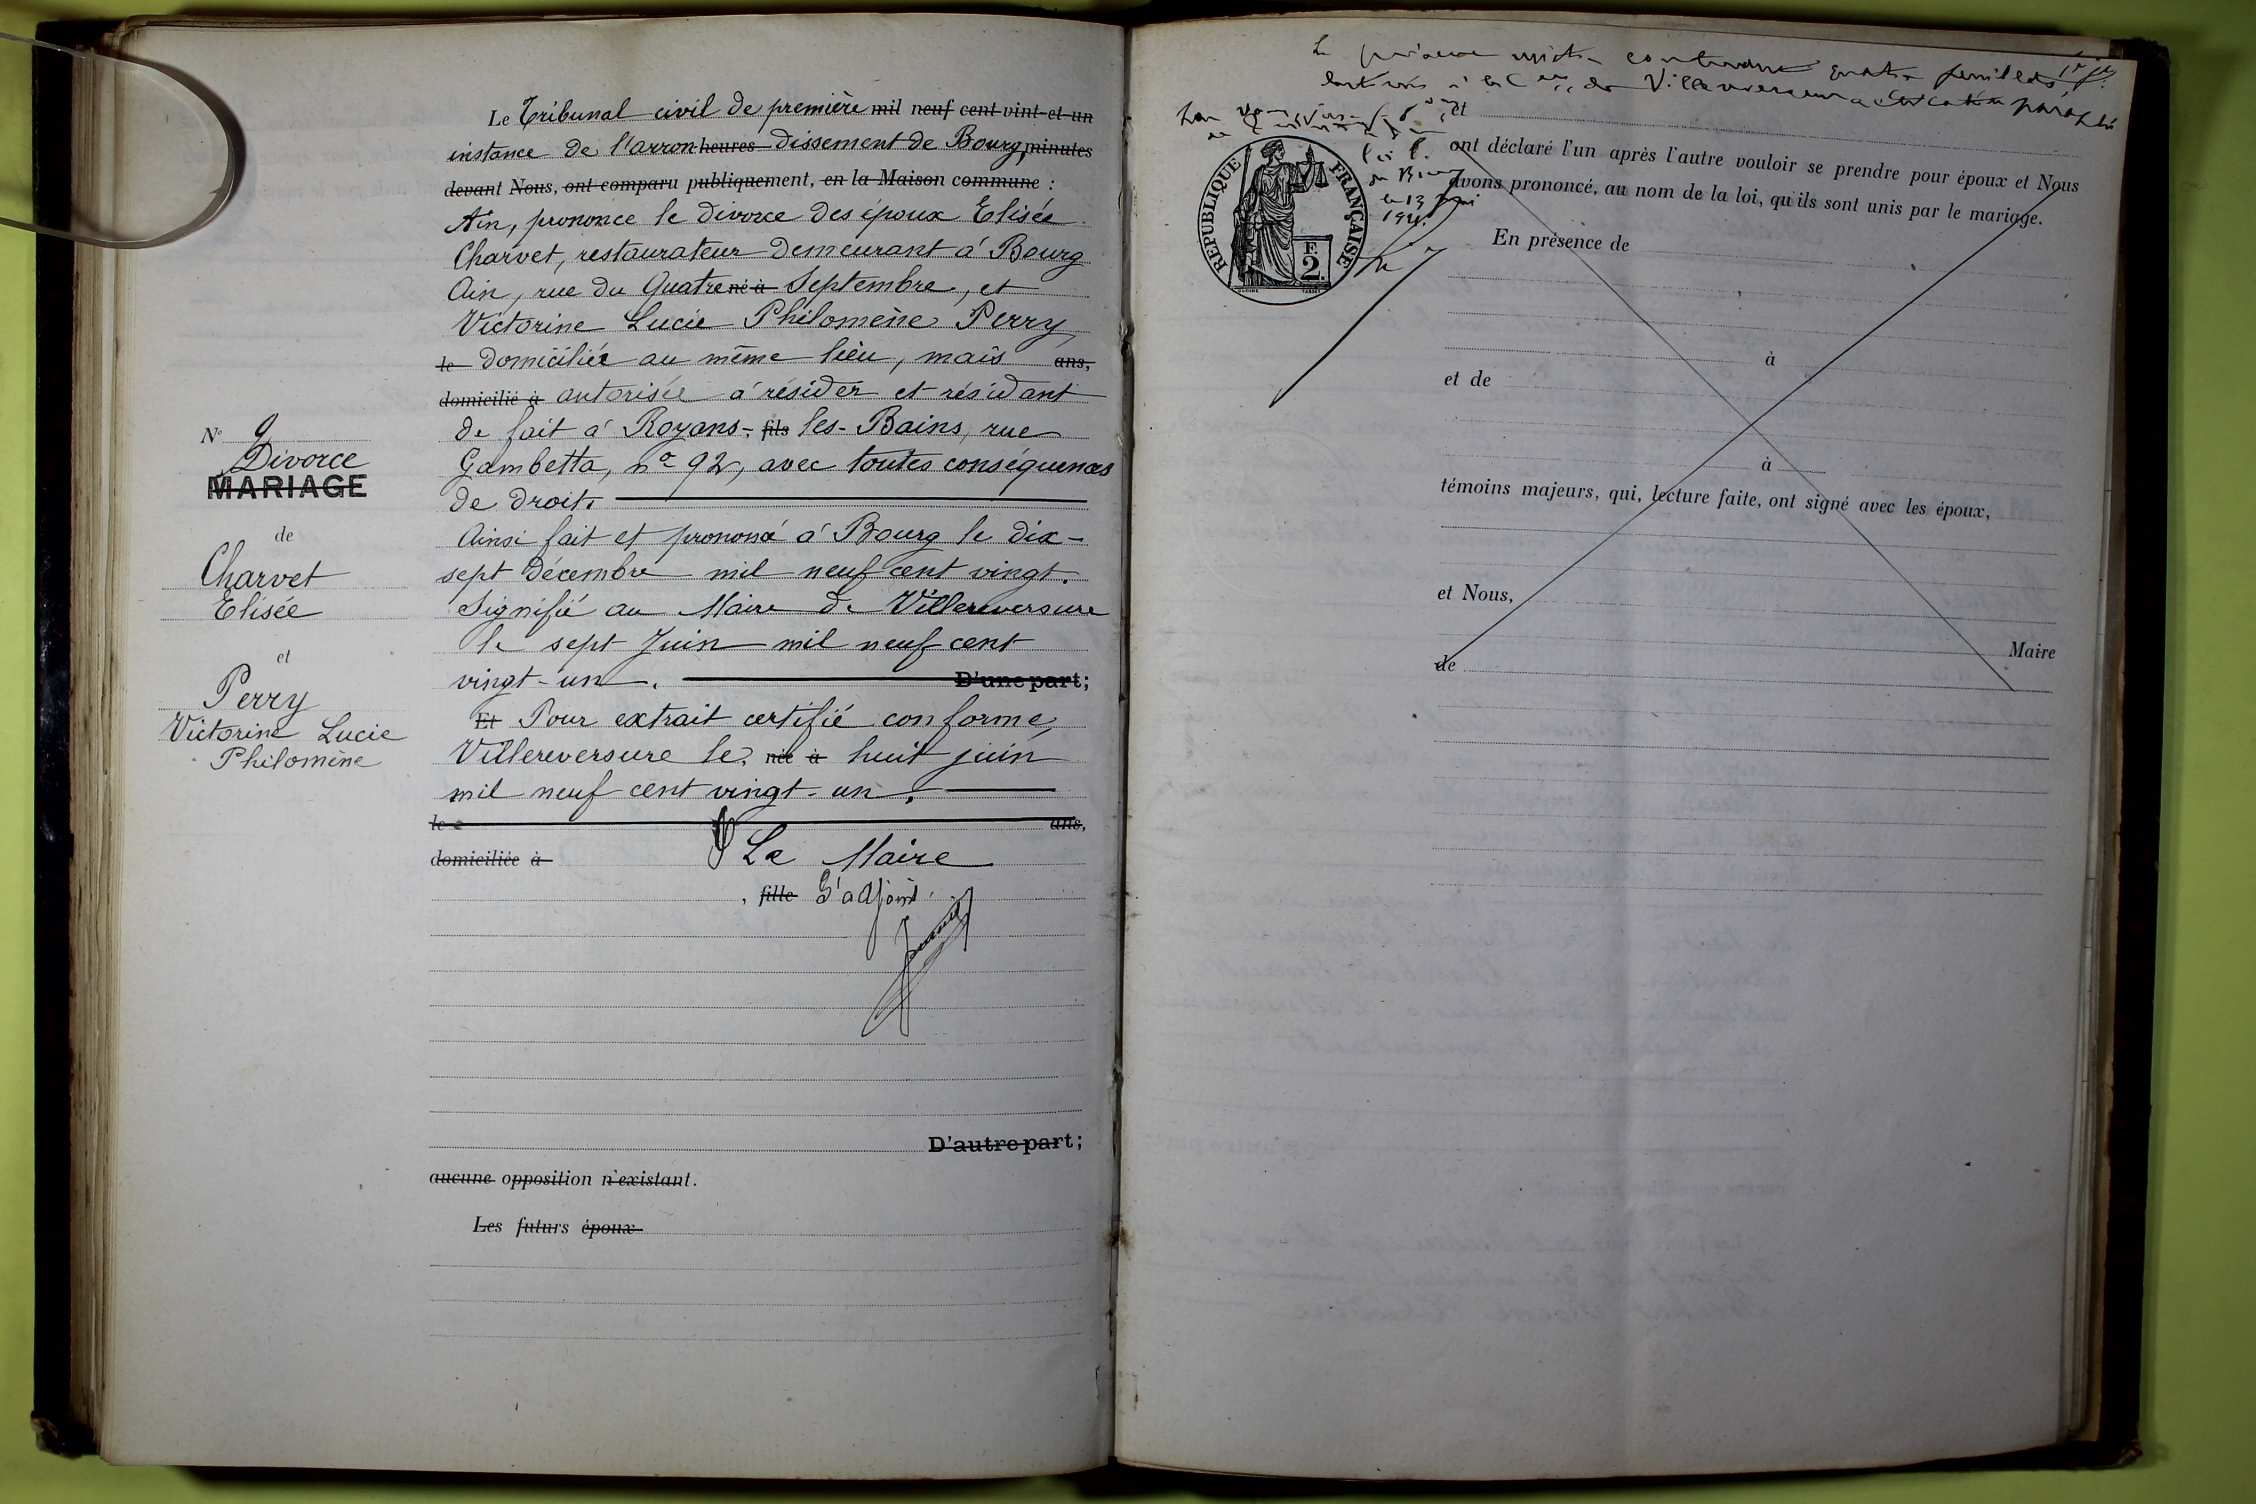 Le Tribunal civil de première mil neuf cent vint-et-un
instance de l'arron heures dissement de Bourg, minutes
devant Nous, ont comparu publiquement, en la Maison commune :
Ain, prononce le divorce des époux Elisée
Charvet, restaurateur demeurant à Bourg
Ain, rue du Quatre né à Septembre, et
Victorine Lucie Philomène Perry
le domiciliée au même lieu, mais ans,
domicilié à autorisée à résider et résidant
de fait à Royans-, fils les-Bains, rue
Gambetta, n° 92, avec toutes conséquences
de droit.
Ainsi fait et prononcé à Bourg le dix-
sept décembre mil neuf cent vingt.
Signifié au Maire de Villereversure
le sept Juin mil neuf cent
vingt-un. D'une part;
Et Pour extrait certifié conforme,
Villereversure le, née à huit juin
mil neuf cent vingt-un.
le ans,
domiciliée à Le Maire
, fille L'adjoint
D'autre part;
aucune opposition n'existant.
Les futurs époux
N° 9
Divorce
MARIAGE
de
Charvet
Elisée
et
Perry
Victorine Lucie
Philomène
contenant quatre feuillets
de Villereversure paraphé
RÉPUBLIQUE FRANÇAISE
F.
2.
le 13
et
ont déclaré l'un après l'autre vouloir se prendre pour époux et Nous
avons prononcé, au nom de la loi, qu'ils sont unis par le mariage.
En présence de
à
et de
à
témoins majeurs, qui, lecture faite, ont signé avec les époux,
et Nous,
Maire
de